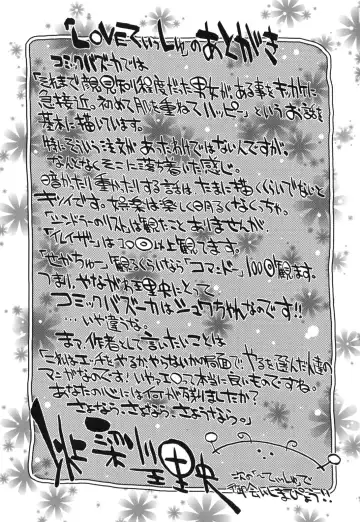 「LOVEていっしゅ」のあとがき
コミックバズーカでは
「それまで顔見知り程度だった男女がある事をキッカケに
急接近。初めて肌を重ねてハッピー」というお話を
基本に描いています。
特にそういう注文があったわけではないんですが。
なんとなくそこに落ち着いた感じ。
暗かったり重かったりする話はたまに描くくらいでないと
キツイです。娯楽は楽しく明るくなくちゃ。
「シンドラーのリスト」は観たことありませんが、
「イレイザー」は10回以上観てます。
「せかちゅー」観るくらいなら「コマンドー」100回観ます。
つまり、やながわ理央にとって
コミックバズーカはシュワちゃんなのです!!
……いや違うな。
まァ作者として言いたいことは
「これはエッチをやるかやらないかの局面で、やるを選んだ人達の
マンガなのです!いやァエロって本当に良いものですね。
あなたの心には何が残りましたか?
さよなら、さよなら、さようなら。」
理央
次の「ていっしゅ」で
お会いしまぴょう!!